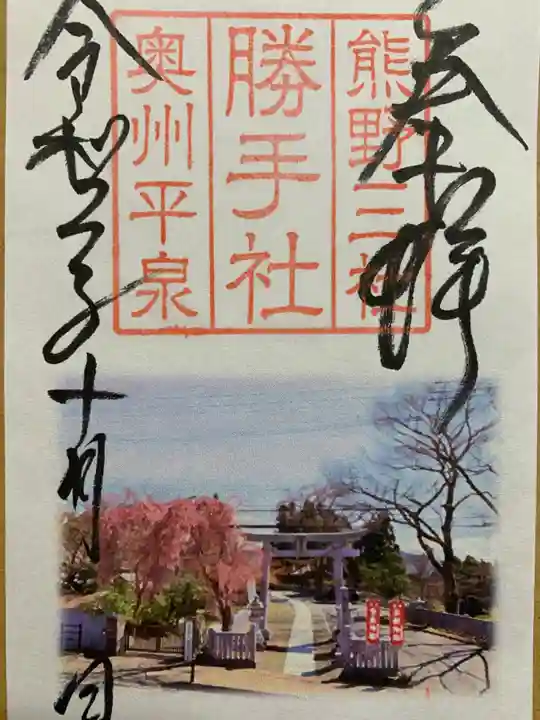 奉拝
熊野三社
勝手社
奥州平泉
令和
十月
日